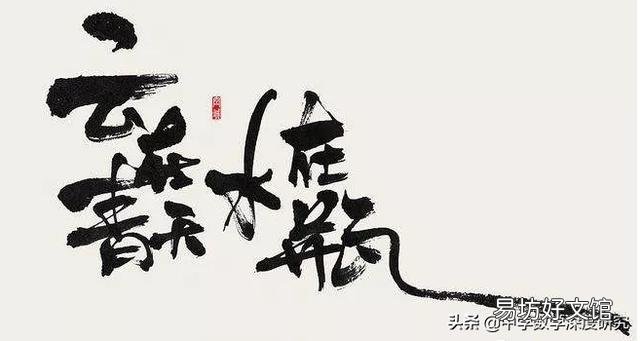 云在青天
水在瓶
易坊好文馆
头条 @中学数学深度研究